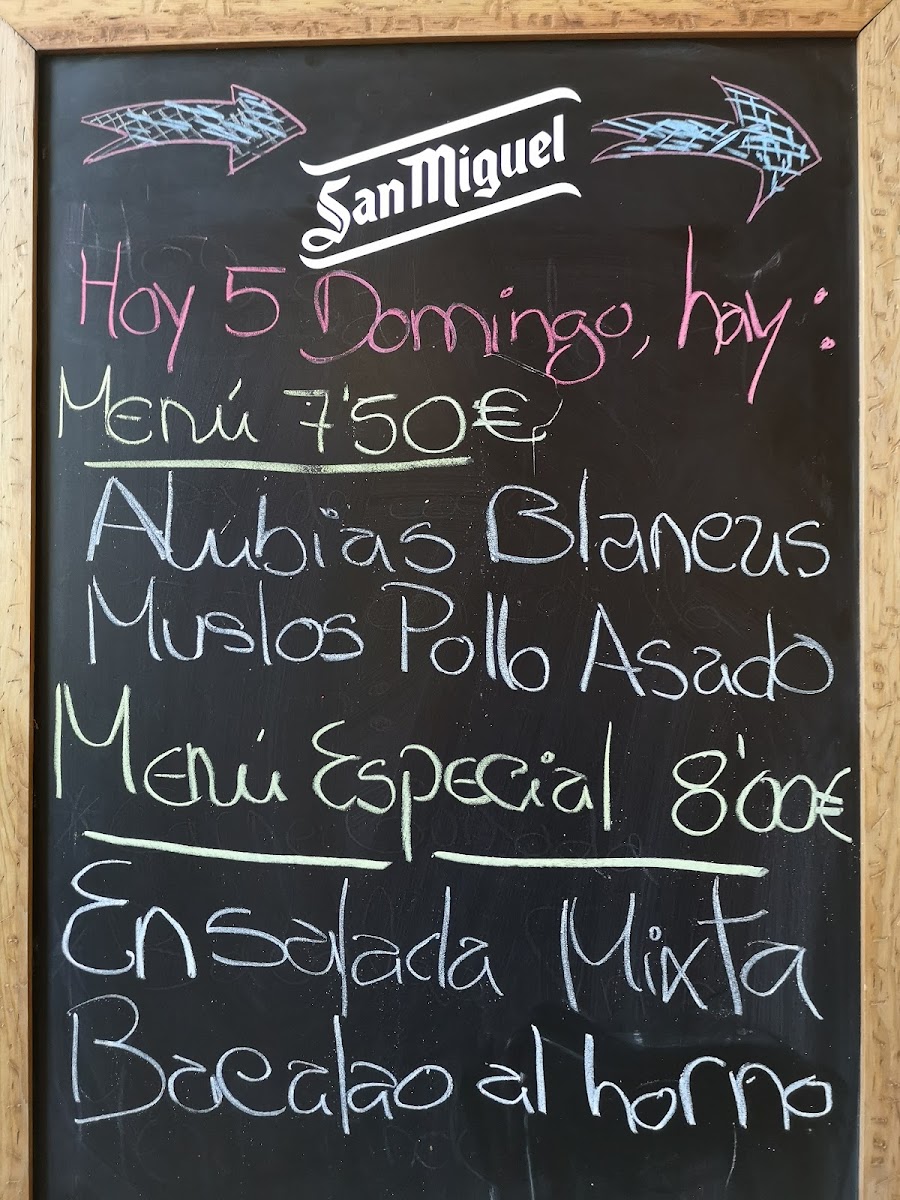 San Miguel
Hoy 5 Domingo, hay:
Menú 7'50€
Alubias Blancas
Muslos Pollo Asado
Menú Especial 8'00€
Ensalada Mixta
Bacalao al horno